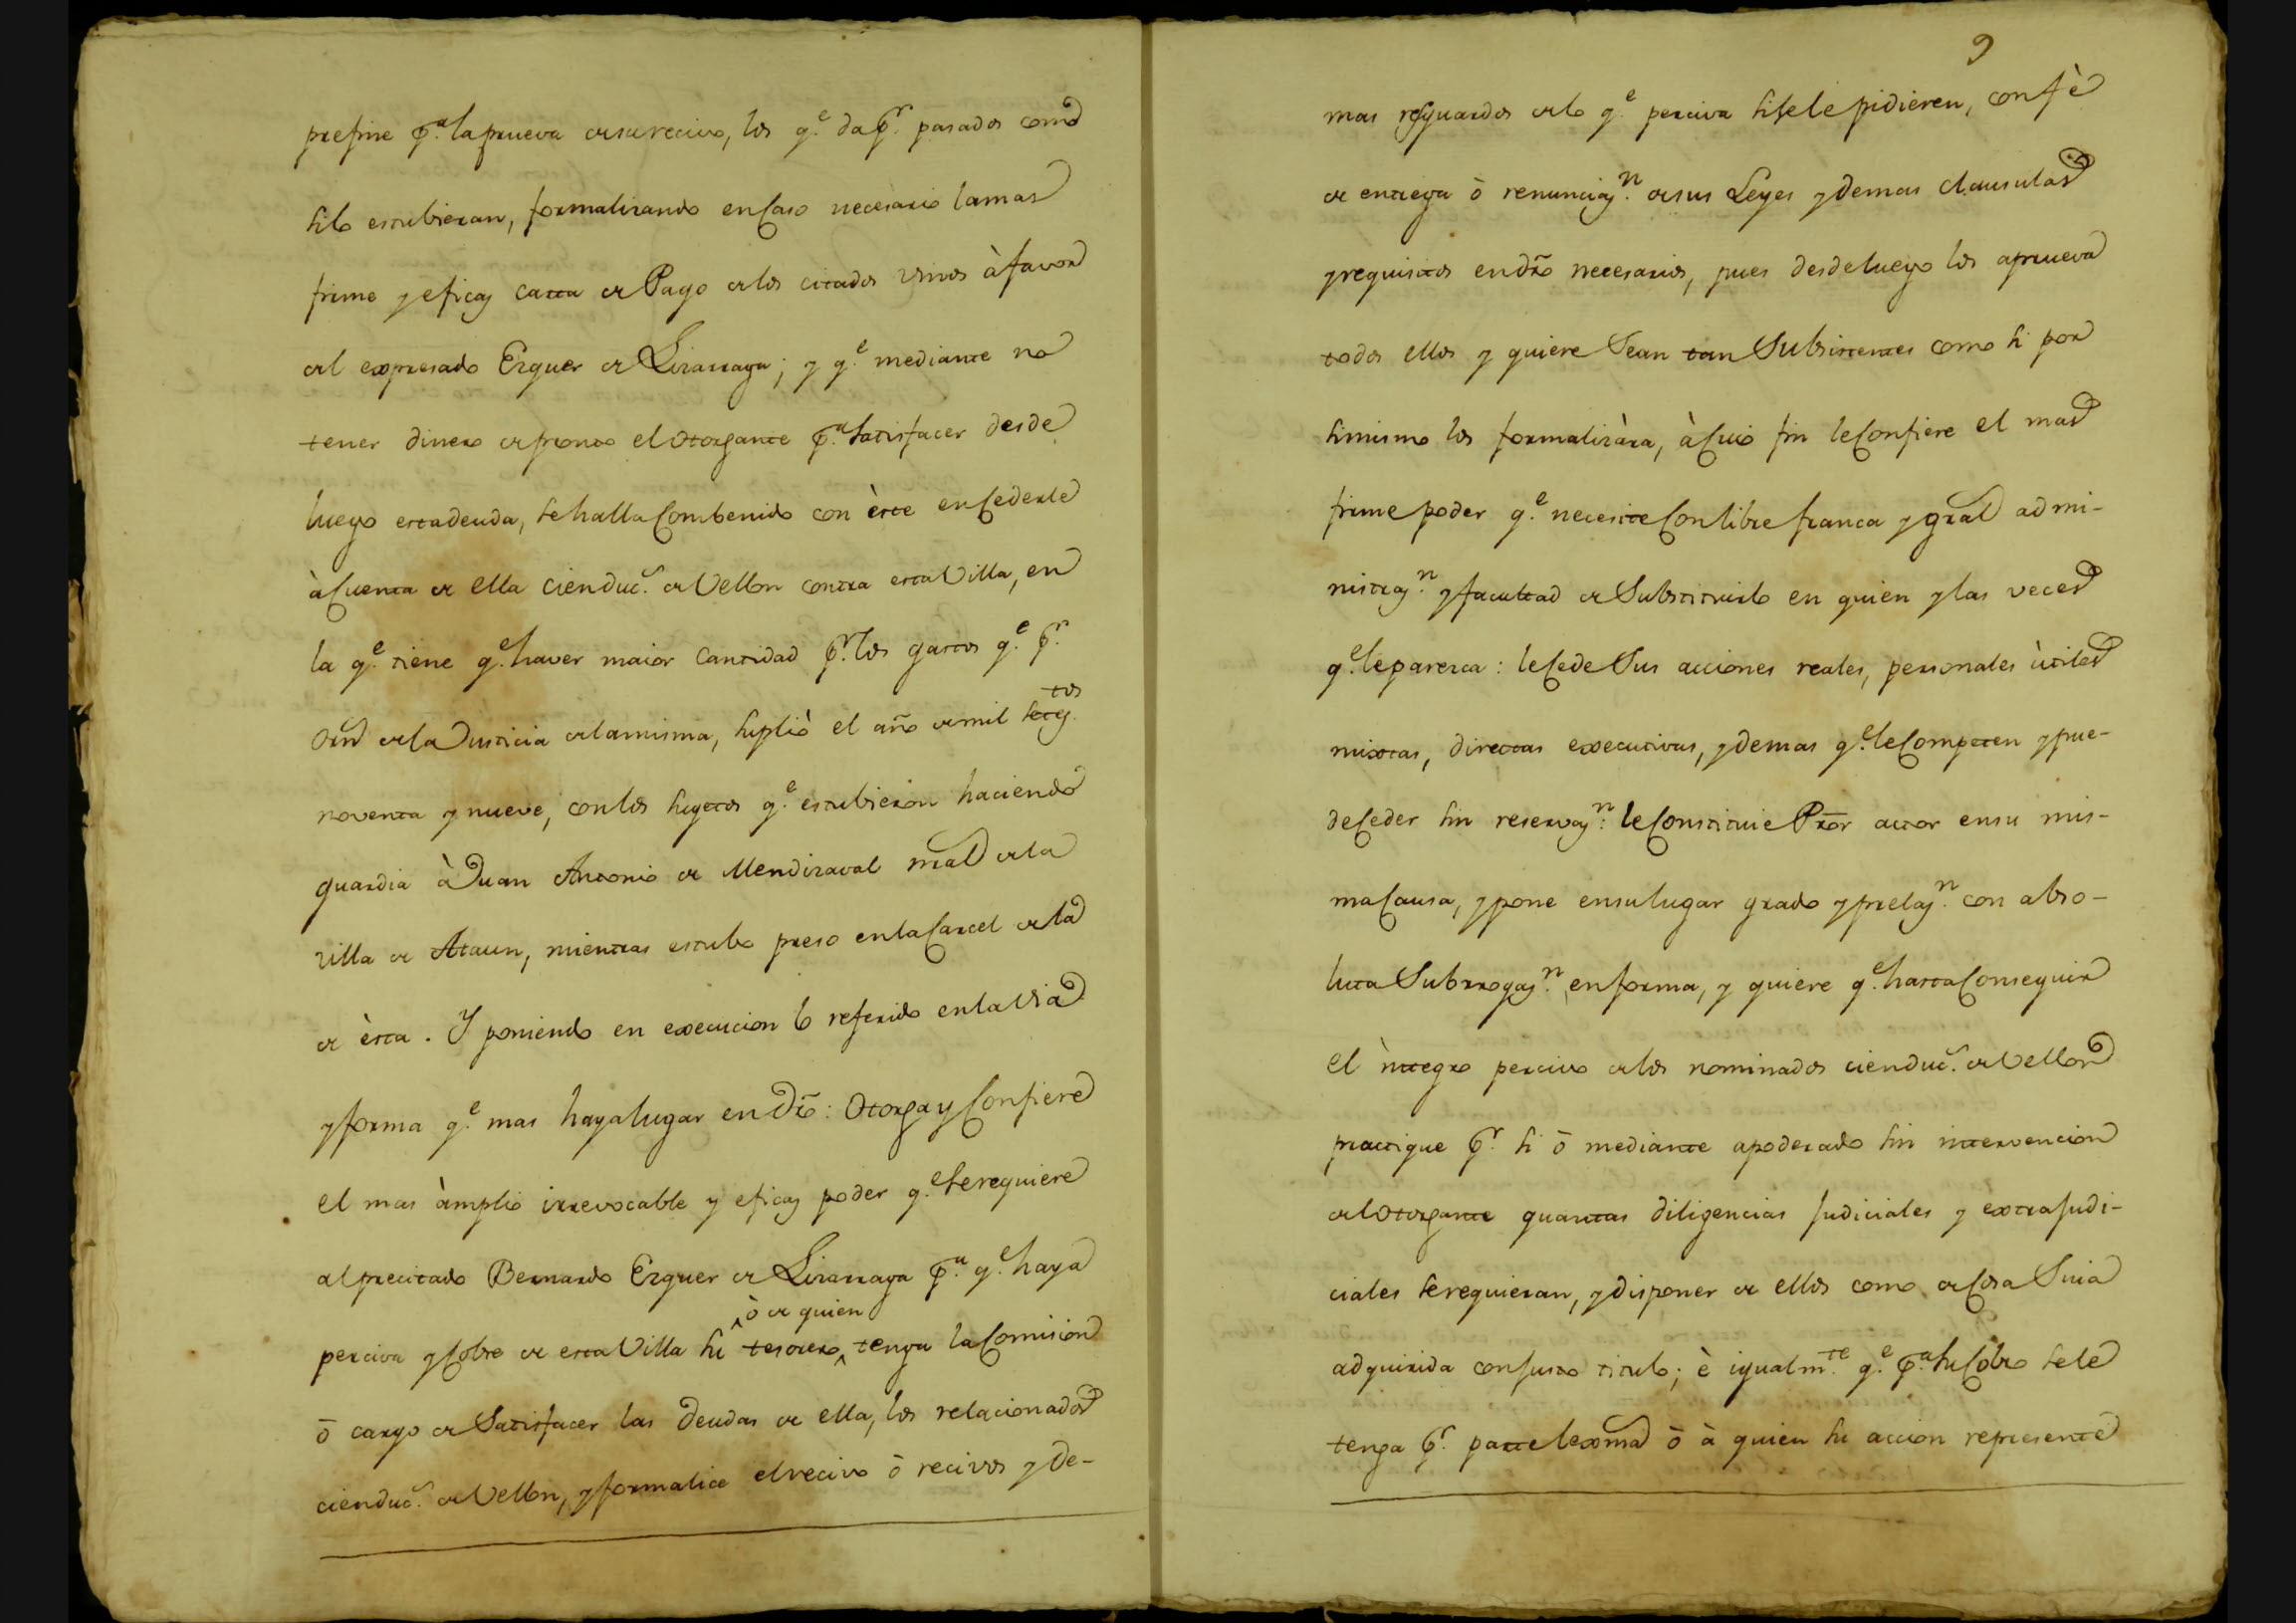 prefine p.ª la prueva de su recivo, los q.e da p.r pasados como
si lo estubieran, formalizando en caso necesario la mas
firme y eficaz carta de Pago de los citados vinos à favor
del expresado Ezquer de Lizarraga; y q.e mediante no
tener dinero de pronto el otorgante p.ª satisfacer desde
luego esta deuda, se halla combenido con èste en cederle
à cuenta de ella cien duc.s de Vellon contra esta Villa, en
la q.e tiene q.e haver maior cantidad p.r los gastos q.e p.r
orn de la Justicia de la misma, suplió el año de mil setez.tos
noventa y nueve, con los sugetos q.e estubieron haciendo
guardia à Juan Antonio de Mendizaval nral de la
villa de Ataun, mientras estubo preso en la Carcel de la
de èsta. Y poniendo en execucion lo referido en la via
y forma q.e mas haya lugar en dro: Otorga y Confiere
el mas àmplio irrevocable y eficaz poder q.e se requiere
al precitado Bernardo Ezquer de Lizarraga p.ª q.e haya
ò de quien
perciva y Cobre de esta Villa su tesorero ^ tenga la Comision
ō cargo de Satisfacer las deudas de ella, los relacionados
cien duc.s de Vellon, y formalice el recivo ō recivos y de-
9
mas resguardos de lo q.e perciva si se le pidieren, con fè
de entrega ò renunciaz.n de sus Leyes y demas clausulas
y requisitos en dro necesarios, pues desde luego los aprueva
todos ellos y quiere Sean tan Subsistentes como si por
simismo los formalizàra, à cuio fin le Confiere el mas
firme poder q.e necesite Con libre franca y gral admi-
nistraz.n y facultad de Substituirlo en quien y las veces
q.e le parezca: le Cede Sus acciones reales, personales ùtiles
mixtas, directas executivas, y demas q.e le Competen y pue-
de Ceder sin reservaz.n: le Constituie Pror actor en su mis-
ma Causa, y pone en su lugar grado y prelaz.n con abso-
luta Subrrogaz.n en forma, y quiere q.e hasta Conseguir
el ìntegro percivo de los nominados cien duc.s de Vellon
practique p.r si ō mediante apoderado sin intervencion
del Otorgante quantas diligencias Judiciales y extraJudi-
ciales se requieran, y disponer de ellos como de Cosa Suia
adquirida con justo titulo; è igualm.te q.e p.ª su Cobro se le
tenga p.r parte lexma ō à quien su accion represente